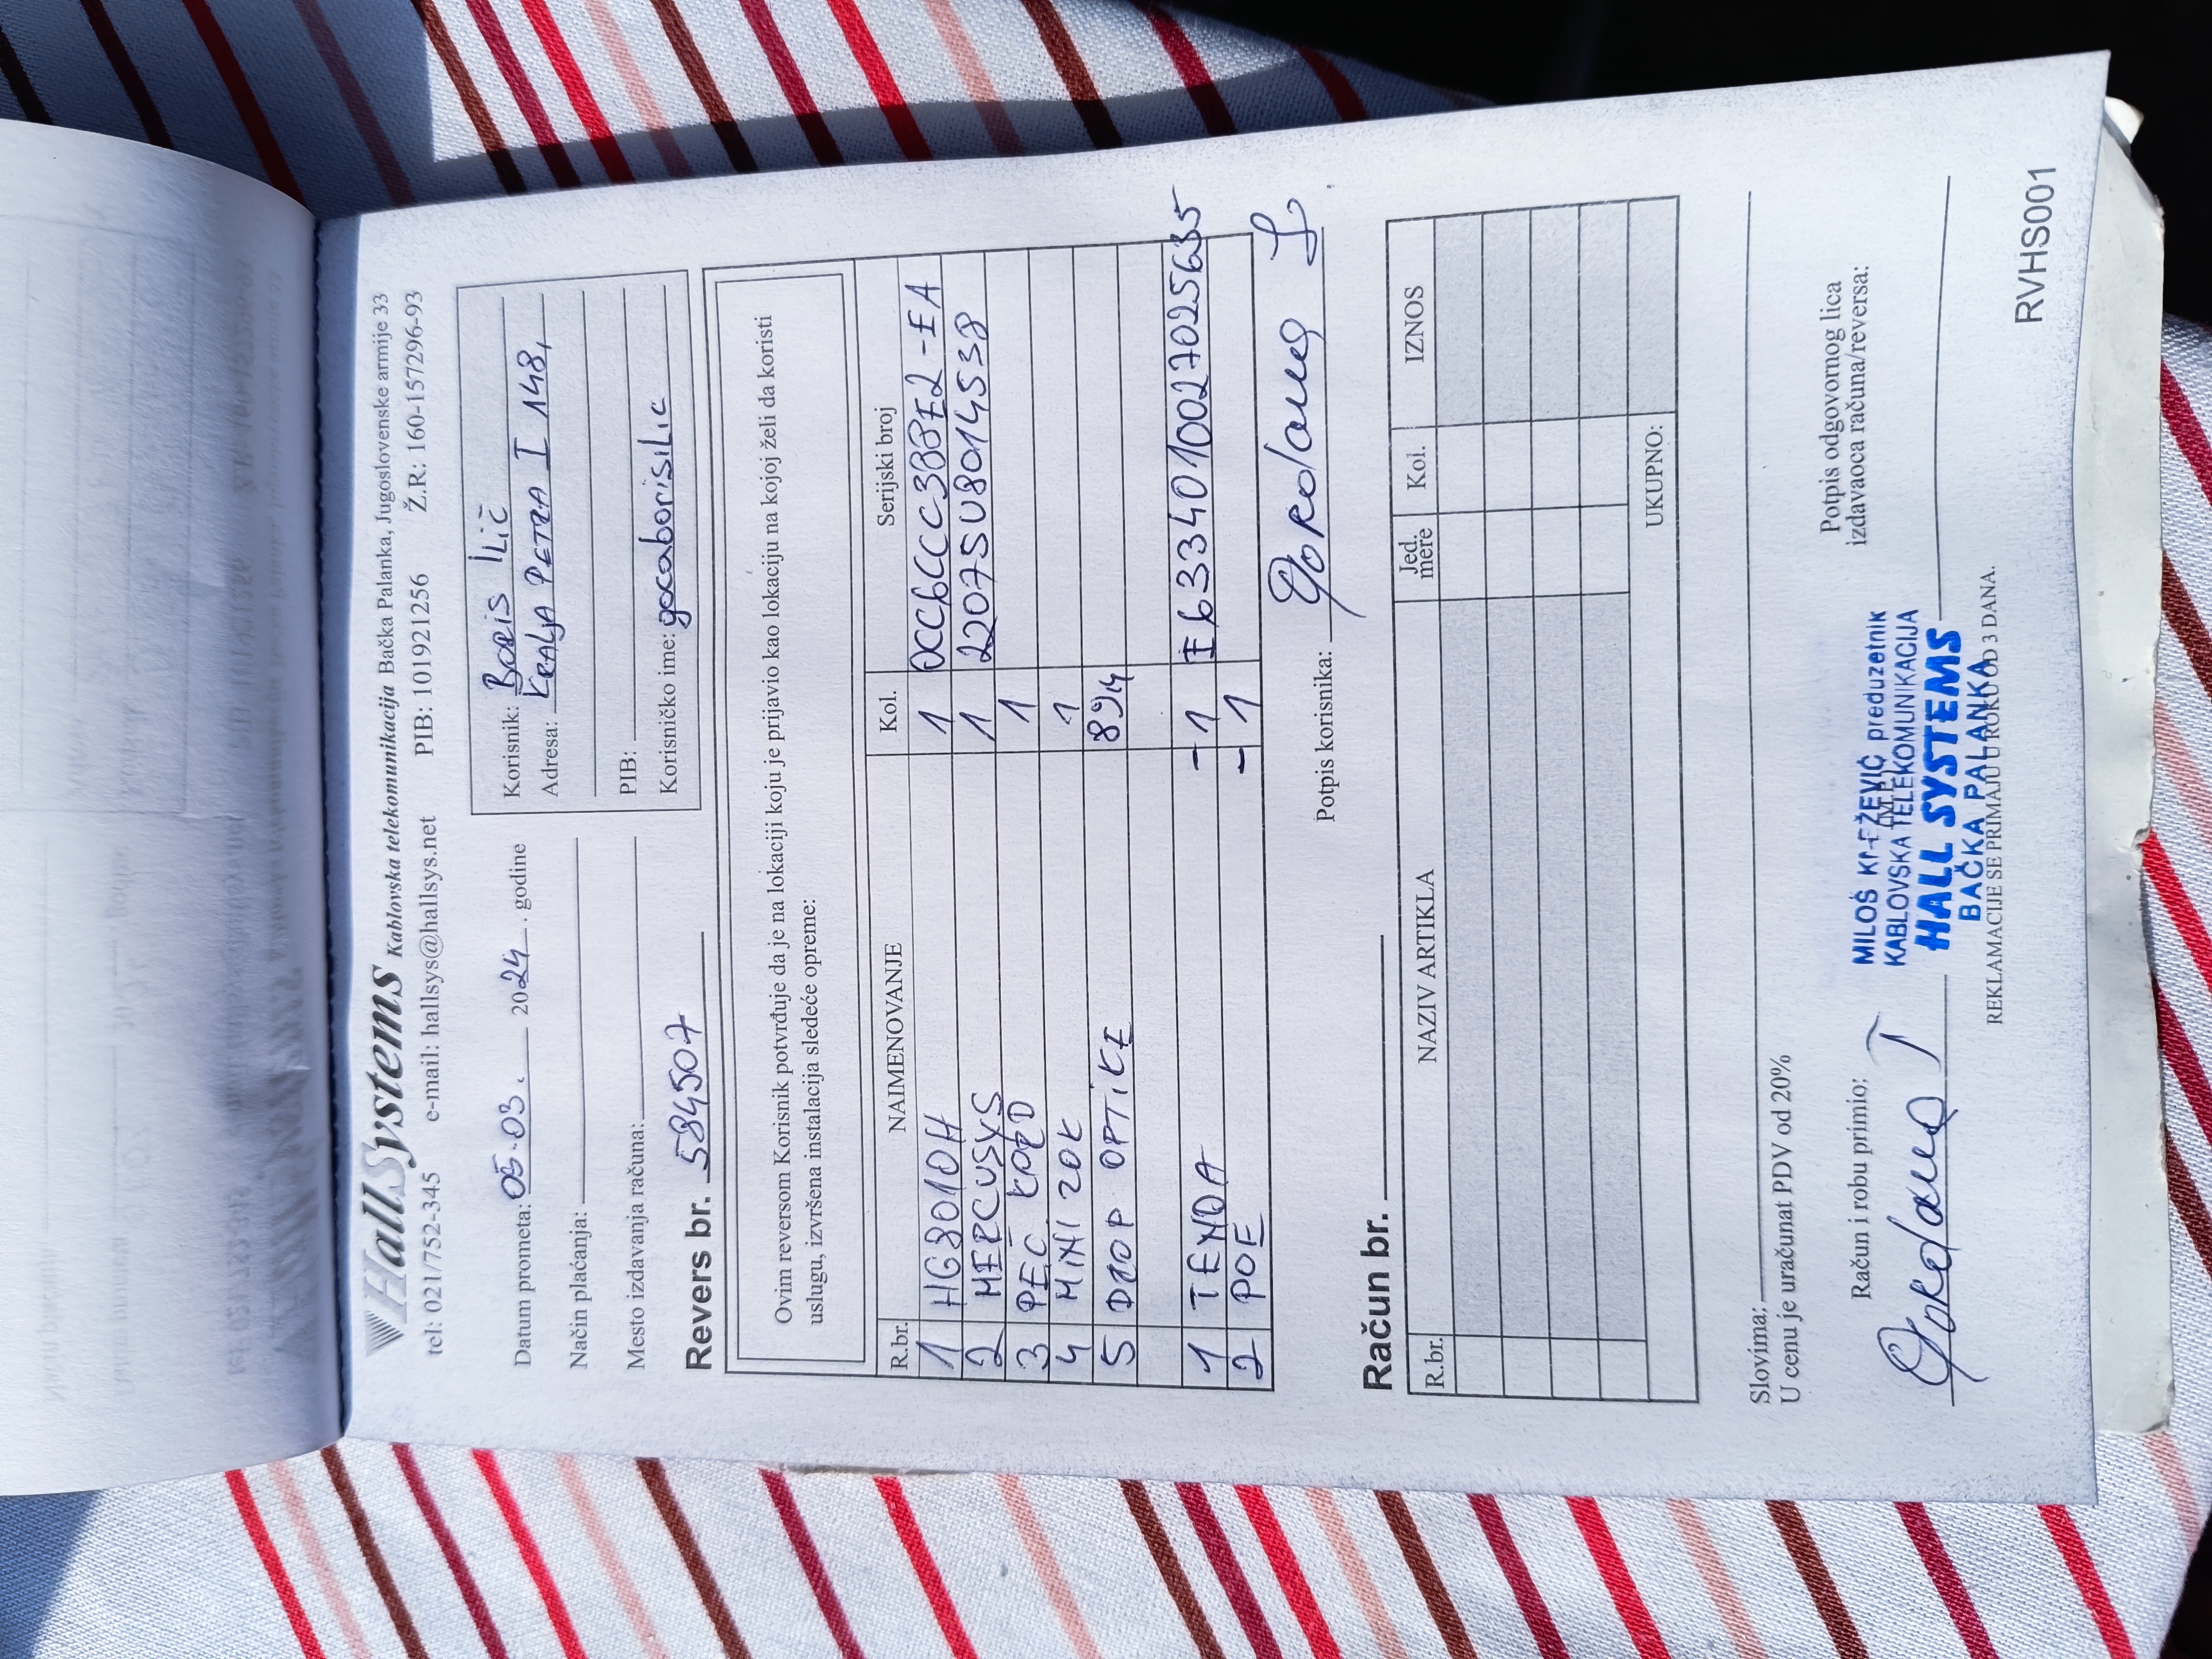 HallSystems Kablovska telekomunikacija Bačka Palanka, Jugoslovenske armije 33
tel: 021/752-345 e-mail: hallsys@hallsys.net PIB: 101921256 Ž.R: 160-157296-93
Datum prometa: 05.03. 2024. godine
Način plaćanja:
Mesto izdavanja računa:
Korisnik: Boris Ilič
Adresa: KRALJA PETRA I 148,
PIB:
Korisničko ime: gocaborisilic
Revers br. 584507
Ovim reversom Korisnik potvrđuje da je na lokaciji koju je prijavio kao lokaciju na kojoj želi da koristi
uslugu, izvršena instalacija sledeće opreme:
R.br. NAIMENOVANJE Kol. Serijski broj
1 HG8010H 1
2 MERCUSYS 1 2207SU8014538
3 PEČ 1
4 MINI 20K 1
5 DROP OPTIKE 89m
1 TENDA -1 E6334010027025635
2 POE -1
Potpis korisnika: Gordana
Račun br.
R.br. NAZIV ARTIKLA Jed. mere Kol. IZNOS
UKUPNO:
Slovima:
U cenu je uračunat PDV od 20%
Račun i robu primio:
Gordana
MILOŠ preduzetnik
KABLOVSKA TELEKOMUNIKACIJA
HALL SYSTEMS
BAČKA PALANKA
Potpis odgovornog lica
izdavaoca računa/reversa:
REKLAMACIJE SE PRIMAJU U ROKU OD 3 DANA.
RVHS001